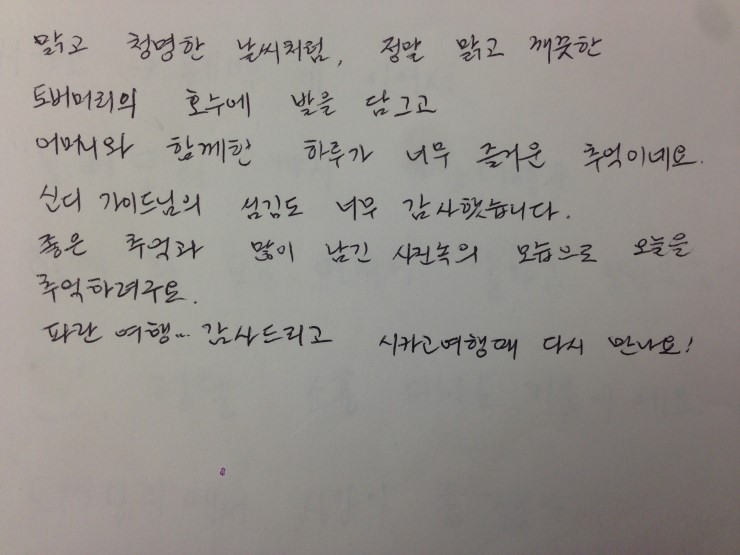 맑고 청명한 날씨처럼, 정말 맑고 깨끗한
토버머리의 호수에 발을 담그고
어머니와 함께한 하루가 너무 즐거운 추억이네요.
신디 가이드님의 섬김도 너무 감사했습니다.
좋은 추억과 많이 남긴 사진속의 모습으로 오늘을
추억하려구요.
파란 여행... 감사드리고 시카고여행때 다시 만나요!